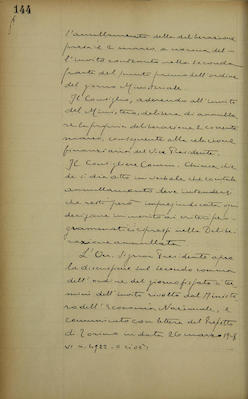 144
l'annullamento della deliberazione
presa il 2 marzo, a norma del-
l'invito contenuto nella seconda
parte del punto primo dell'ordine
del giorno Ministeriale.
Il Consiglio, aderendo all'invito
del Ministero, delibera di annulla
re la propria deliberazione 2 corrente
marzo, conseguente alla relazione
finanziaria del Vice Presidente.
Il Consigliere Comm. chie
de si dia atto in verbale che con tale
annullamento deve intendersi
che resti però impregiudicata ogni
in merito ai criteri pro
grammatici espressi nella Delibe
razione annullata.
L'On. Signor Presidente apre
la discussione sul secondo comma
dell'ordine del giorno fissato a ter
mini dell'invito rivolto dal Ministe
ro dell'Economia Nazionale, e
comunicato con lettera del Prefetto
di Torino in data 26 marzo